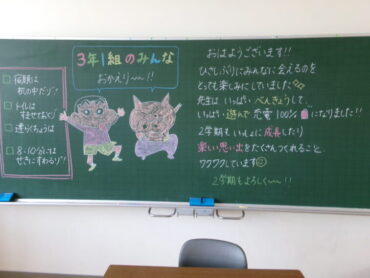 3年1組のみんな
おかえり〜!!
□ 宿題は
机の中だゾ!
□ トイレは
すませておく!
□
□ 8:10分には
せきにすわるゾ!
おはようございます!!
ひさしぶりにみんなに会えるのを
とっても楽しみにしていました
先生は いっぱい べんきょうして、
いっぱい 遊んで 恐竜 100%
になりました!!
2学期も いっしょに 成長したり
楽しい思い出をたくさんつくれること、
ワクワクしています
2学期もよろしく〜!!